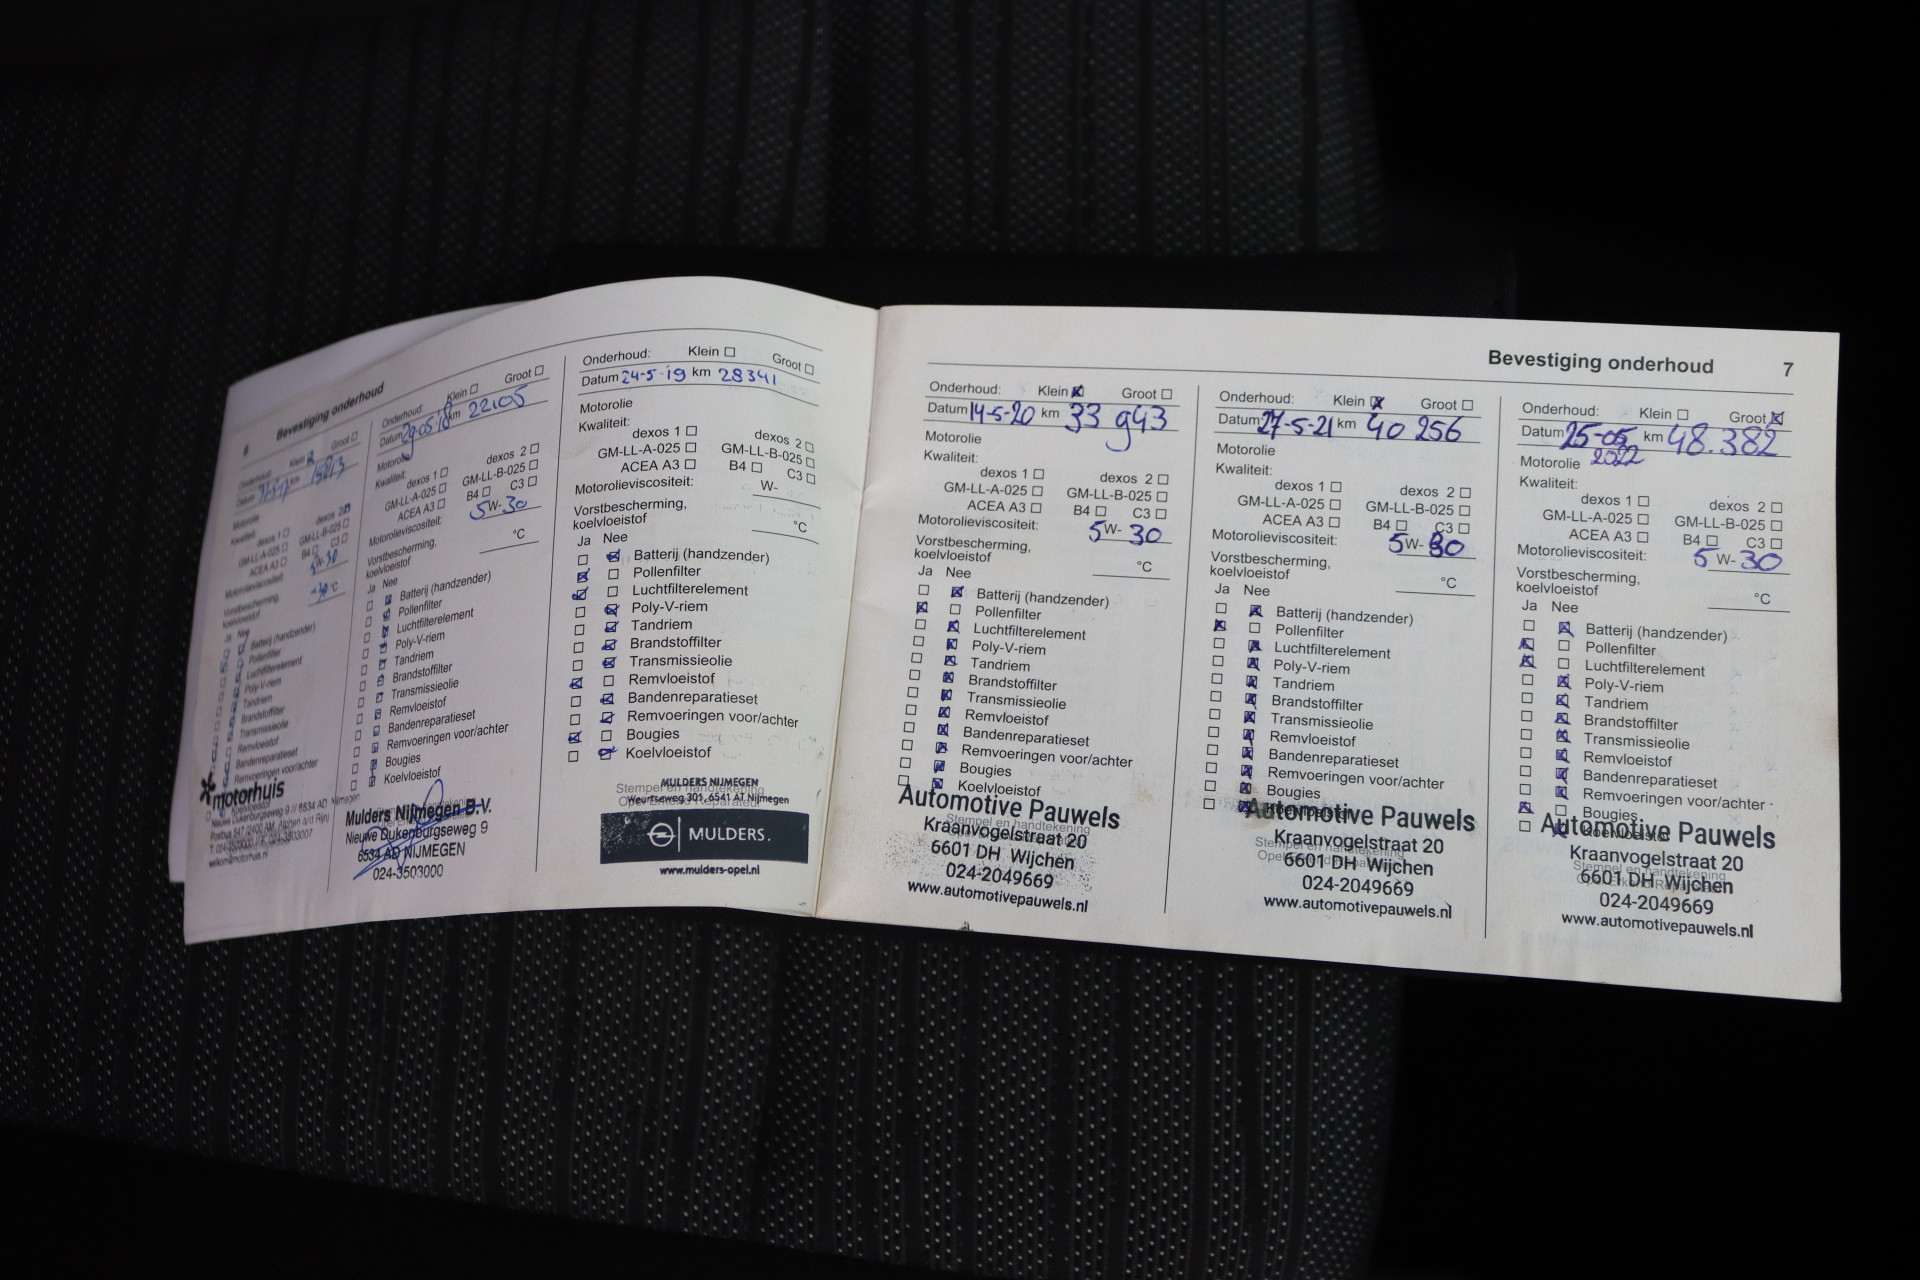 6 Bevestiging onderhoud
Onderhoud: Klein Groot
Datum km
Motorolie
Kwaliteit: dexos 1 dexos 2
GM-LL-A-025 GM-LL-B-025
ACEA A3 B4 C3
Motorolieviscositeit: 5W-30
Vorstbescherming,
koelvloeistof °C
Ja Nee
Batterij (handzender)
Pollenfilter
Luchtfilterelement
Poly-V-riem
Tandriem
Brandstoffilter
Transmissieolie
Remvloeistof
Bandenreparatieset
Remvoeringen voor/achter
Koelvloeistof
motorhuis
Nieuwe Dukenburgseweg 9 // 6534 AD Nijmegen
Onderhoud: Klein Groot
Datum 29-05-18 km 22105
Motorolie
Kwaliteit:
dexos 1 dexos 2
GM-LL-A-025 GM-LL-B-025
ACEA A3 B4 C3
Motorolieviscositeit: 5W-30
Vorstbescherming,
koelvloeistof °C
Ja Nee
Batterij (handzender)
Pollenfilter
Luchtfilterelement
Poly-V-riem
Tandriem
Brandstoffilter
Transmissieolie
Remvloeistof
Bandenreparatieset
Remvoeringen voor/achter
Bougies
Koelvloeistof
Mulders Nijmegen B.V.
Nieuwe Dukenburgseweg 9
6534 AD NIJMEGEN
024-3503000
Onderhoud: Klein Groot
Datum 24-5-19 km 28341
Motorolie
Kwaliteit:
dexos 1 dexos 2
GM-LL-A-025 GM-LL-B-025
ACEA A3 B4 C3
Motorolieviscositeit: W-
Vorstbescherming,
koelvloeistof °C
Ja Nee
Batterij (handzender)
Pollenfilter
Luchtfilterelement
Poly-V-riem
Tandriem
Brandstoffilter
Transmissieolie
Remvloeistof
Bandenreparatieset
Remvoeringen voor/achter
Bougies
Koelvloeistof
MULDERS NIJMEGEN
Stempel en handtekening
Weurtseweg 301, 6541 AT Nijmegen
MULDERS.
www.mulders-opel.nl
Bevestiging onderhoud 7
Onderhoud: Klein Groot
Datum 14-5-20 km 33 943
Motorolie
Kwaliteit:
dexos 1 dexos 2
GM-LL-A-025 GM-LL-B-025
ACEA A3 B4 C3
Motorolieviscositeit: 5W-30
Vorstbescherming,
koelvloeistof °C
Ja Nee
Batterij (handzender)
Pollenfilter
Luchtfilterelement
Poly-V-riem
Tandriem
Brandstoffilter
Transmissieolie
Remvloeistof
Bandenreparatieset
Remvoeringen voor/achter
Bougies
Koelvloeistof
Automotive Pauwels
Stempel en handtekening
Kraanvogelstraat 20
6601 DH Wijchen
024-2049669
www.automotivepauwels.nl
Onderhoud: Klein Groot
Datum 27-5-21 km 40 256
Motorolie
Kwaliteit:
dexos 1 dexos 2
GM-LL-A-025 GM-LL-B-025
ACEA A3 B4 C3
Motorolieviscositeit: 5W-30
Vorstbescherming,
koelvloeistof °C
Ja Nee
Batterij (handzender)
Pollenfilter
Luchtfilterelement
Poly-V-riem
Tandriem
Brandstoffilter
Transmissieolie
Remvloeistof
Bandenreparatieset
Remvoeringen voor/achter
Bougies
Automotive Pauwels
Kraanvogelstraat 20
Stempel en handtekening
6601 DH Wijchen
024-2049669
www.automotivepauwels.nl
Onderhoud: Klein Groot
Datum 25-05 2022 km 48.382
Motorolie
Kwaliteit:
dexos 1 dexos 2
GM-LL-A-025 GM-LL-B-025
ACEA A3 B4 C3
Motorolieviscositeit: 5W-30
Vorstbescherming,
koelvloeistof °C
Ja Nee
Batterij (handzender)
Pollenfilter
Luchtfilterelement
Poly-V-riem
Tandriem
Brandstoffilter
Transmissieolie
Remvloeistof
Bandenreparatieset
Remvoeringen voor/achter
Bougies
Koelvloeistof
Automotive Pauwels
Kraanvogelstraat 20
Stempel en handtekening
6601 DH Wijchen
024-2049669
www.automotivepauwels.nl